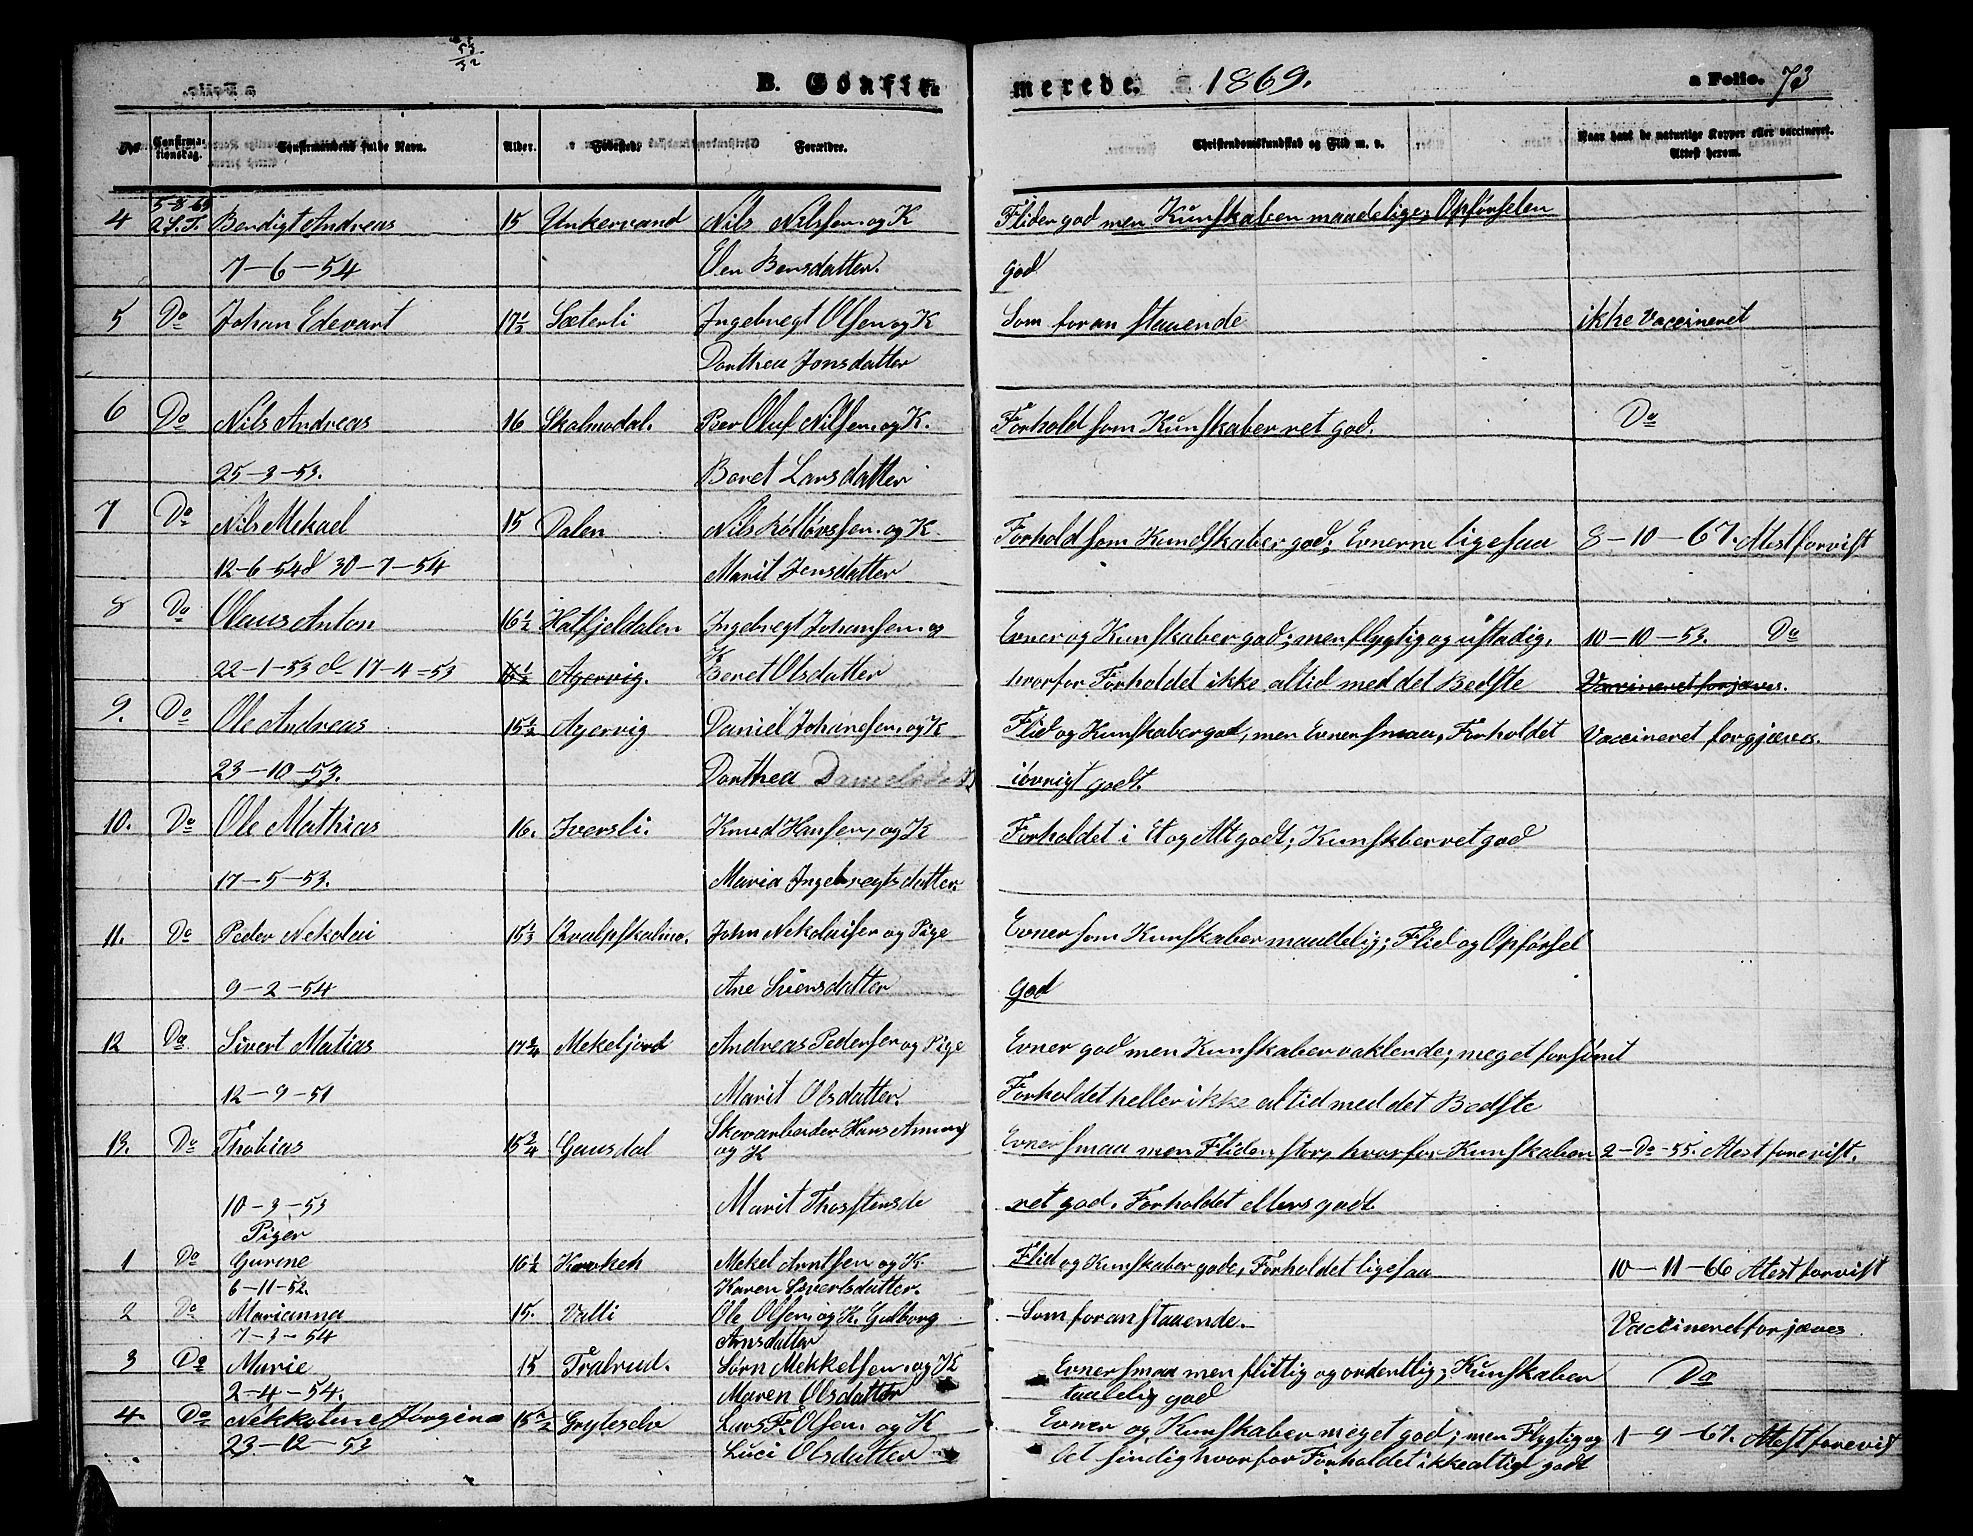 B. Confirmerede. 1869. a Folio. 73
No Confirmationsdag. Confirmandens fulde Navn. Alder. Fødested. Forældre. Christendomskundskab og Flid m. v. Naar havt de naturlige Kopper eller vaccineret. Attest herom.
5-8-69
4 2 S. T. Bendigt Andreas 15 Unkervand Nils Nilssen og K Fliden god men Kunskaben maadelige; Opførselen
7-6-54 Bensdatter. god
5 Do Johan Edevart 17 1/2 Sæterli Ingebregt Olsen og K Som foranstaaende ikke Vaccineret
Dorthea Jonsdatter
6 Do Nils Andreas 16 Skalmodal. Peer Oluf Nilsen og K. Forhold som Kunskaber ret god. Do
25-3-53. Beret Larsdatter
7 Do Nils Mekael 15 Dalen Nils og K Forhold som Kundskaber god; Evnerne ligesaa 8-10-67. Atest forvist
12-6-54 d 30-7-54 Marit Jensdatter
8 Do Olaus Anton 16 1/2 Hatfjeldalen Ingebregt Johansen og Evner og Kunskaber god; men flygtig og ustadig, 10-10-53. Do
22-1-53 d 17-4-53 16 1/2 Agervig. K Beret Olsdatter hvorfor Forholdet ikke altid med det Bedste Vaccineret forjæves.
9. Do Ole Andreas 15 1/2 Agervig Daniel Johansen og K Flid og Kunskaber god, men Evner smaa, Forholdet Vaccineret forgjæves.
23-10-53. Dorthea iøvrigt godt.
10. Do Ole Mathias 16. Iversli. Knud Hansen, og K Forholdet i Et og Alt godt; Kunskber ret god
17-5-53. Maria Ingebregtsdatter.
11. Do Peder Nekolai 15 1/3 John Nekolaisen og Pige Evner som Kunskaber maadelig; Flid og Opførsel
9-2-54 Ane Sivensdatter god
12 Do Sivert Matias 17 3/4 Mekeljord Andreas Pedersen og Pige Evner god men Kunskaber vaklende; meget forsømt
12-9-51 Marit Olsdatter. Forholdet heller ikke altid med det Bedste
13. Do Thobias 15 3/4 Gausdal Skovarbeider Hans og K Evner smaa men Fliden stor, hvorfor Kunskaben 2-Do-55. Atest forevist.
10-3-53 Marit ret god. Forholdet ellers godt
Piger
1 Do Gurine 16 1/2 Mekel Arntsen og K Flid og Kunskaber gode, Forholdet ligesaa 10-11-66 Atest forvist
6-11-52. Karen Sivertsdatter.
2 Do Marianna 15. Valli Ole Olsen og K. Gulborg - Som foranstaaende. - Vaccineret forjæves
7-3-54 Arnsdatter
3 Do Marie 15 Tralrud. Sørn Mekkelsen og K Evner smaa men flittig og ordentlig; Kunskaber Do
2-4-54. Maren Olsdatter taalelig god
4. Do Nekkoline Jørgina 15 1/2 Gryteselv Lars P. Olsen og K Evner og Kunskaber meget god; men Flygtig og 1-9-67. Atest forevist
23-12-53 Luci Olsdatter hvorfor Forholdet ikke altid godt